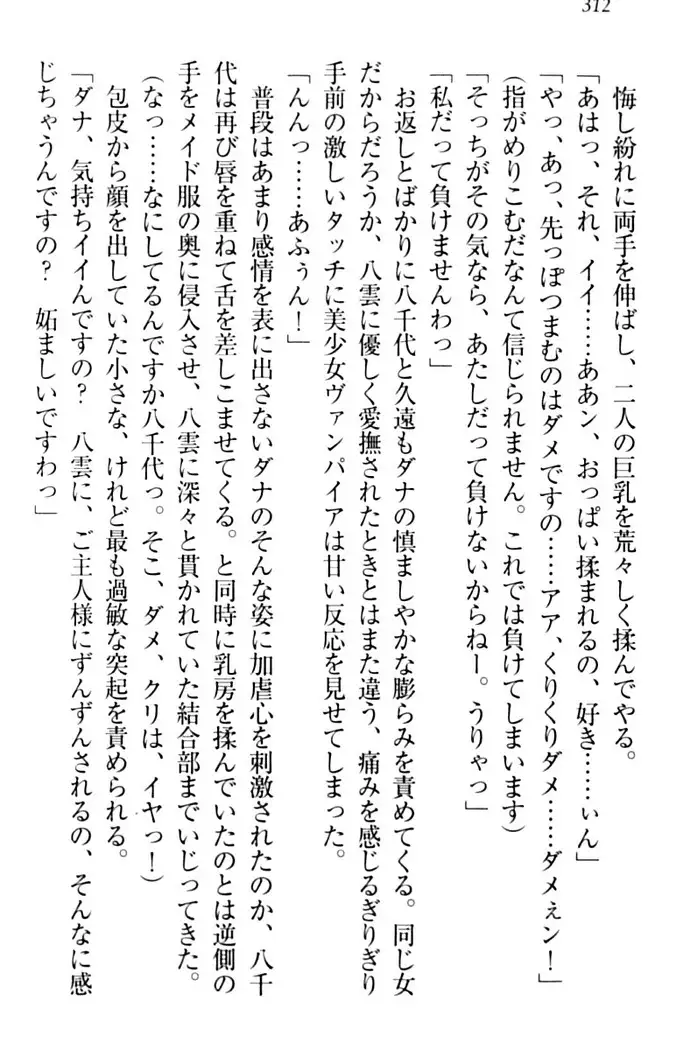 312
悔し紛れに両手を伸ばし、二人の巨乳を荒々しく揉んでやる。
「あはっ、それ、イイ……ああン、おっぱい揉まれるの、好き……ぃん」
「やっ、あっ、先っぽつまむのはダメですの……アア、くりくりダメ……ダメぇン！」
(指がめりこむだなんて信じられません。これでは負けてしまいます)
「そっちがその気なら、あたしだって負けないからねー。うりゃっ」
「私だって負けませんわっ」
お返しとばかりに八千代と久遠もダナの慎ましやかな膨らみを責めてくる。同じ女
だからだろうか、八雲に優しく愛撫されたときとはまた違う、痛みを感じるぎりぎり
手前の激しいタッチに美少女ヴァンパイアは甘い反応を見せてしまった。
「んんっ……あふぅん！」
普段はあまり感情を表に出さないダナのそんな姿に加虐心を刺激されたのか、八千
代は再び唇を重ねて舌を差しこませてくる。と同時に乳房を揉んでいたのとは逆側の
手をメイド服の奥に侵入させ、八雲に深々と貫かれていた結合部までいじってきた。
(なっ……なにしてるんですか八千代っ。そこ、ダメ、クリは、イヤっ！)
包皮から顔を出していた小さな、けれど最も過敏な突起を責められる。
「ダナ、気持ちイイんですの？　八雲に、ご主人様にずんずんされるの、そんなに感
じちゃうんですの？　妬ましいですわっ」